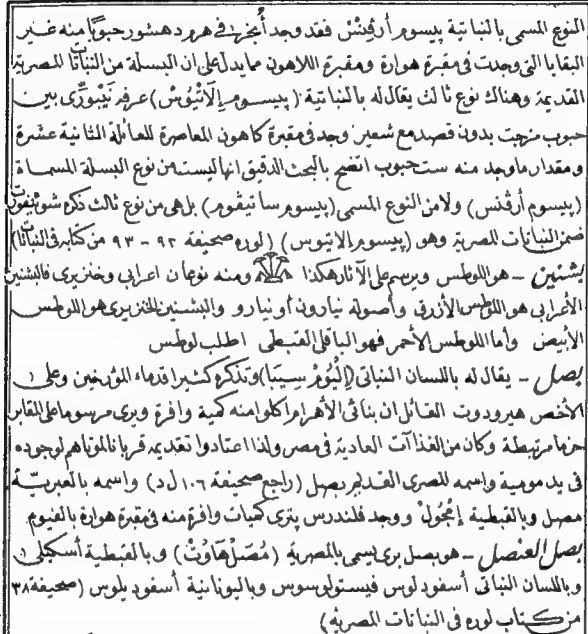 النوع المسمى بالنباتية پيسوم أرڤينش فقد وجد أبخرنه فى هرم دهشور حبوبا منه غير
البقايا التى وجدت فى مقبرة هوارة ومقبرة اللاهون مما يدل على ان البسلة من النباتات المصرية
القديمة وهناك نوع ثالث يقال له بالنباتية (پيسوم إلاتيوس) عرفه نيوبرى بين
حبوب مزجت بدون قصد مع شعير وجد فى مقبرة كاهون المعاصرة للعائلة الثانية عشرة
ومقدار ما وجد منه ست حبوب اتضح بالبحث الدقيق انها ليست من نوع البسلة المسماة
(پيسوم أرڤنس) ولا من النوع المسمى (پيسوم ساتيڤوم) بل هى من نوع ثالث ذكره شوينفورت
ضمن النباتات المصرية وهو (پيسوم إلاتيوس) (لوره صحيفة ٩٢ - ٩٣ من كتابه فى النباتات)
بشنين - هو اللوطس ويرسم على الآثار هكذا ومنه نوعان اعرابى وخنزيرى فالبشنين
الأعرابى هو اللوطس الأزرق وأصوله نيارون أو نيارو والبشنين الخنزيرى هو اللوطس
الأبيض وأما اللوطس الأحمر فهو الباقلى القبطى اطلب لوطس
بصل - يقال له باللسان النباتى (أليوم سيبا) وتذكره كثيرا قدماء المؤرخين وعلى
الأخص هيرودوت القائل ان بنائى الأهرام اكلوا منه كمية وافرة ويرى مرسوما على المقابر
حزما مرتبطة وكان من الغذاآت العادية فى مصر ولذا اعتادوا تقديمه قربانا لموتاهم لوجوده
فى يد مومية واسمه المصرى القديم بصل (راجع صحيفة ١٠٦ ل د) واسمه بالعبرية
بصل وبالقبطية إمجول ووجد فلندرس پترى كميات وافرة منه فى مقبرة هوارة بالفيوم
بصل العنصل - هو بصل برى يسمى بالمصرية (مصل هاوت) وبالقبطية أسكيلى
وباللسان النباتى أسفودلوس فيستولوسوس وباليونانية أسفوديلوس (صحيفة ٣٨
من كتاب لوره فى النباتات المصرية)